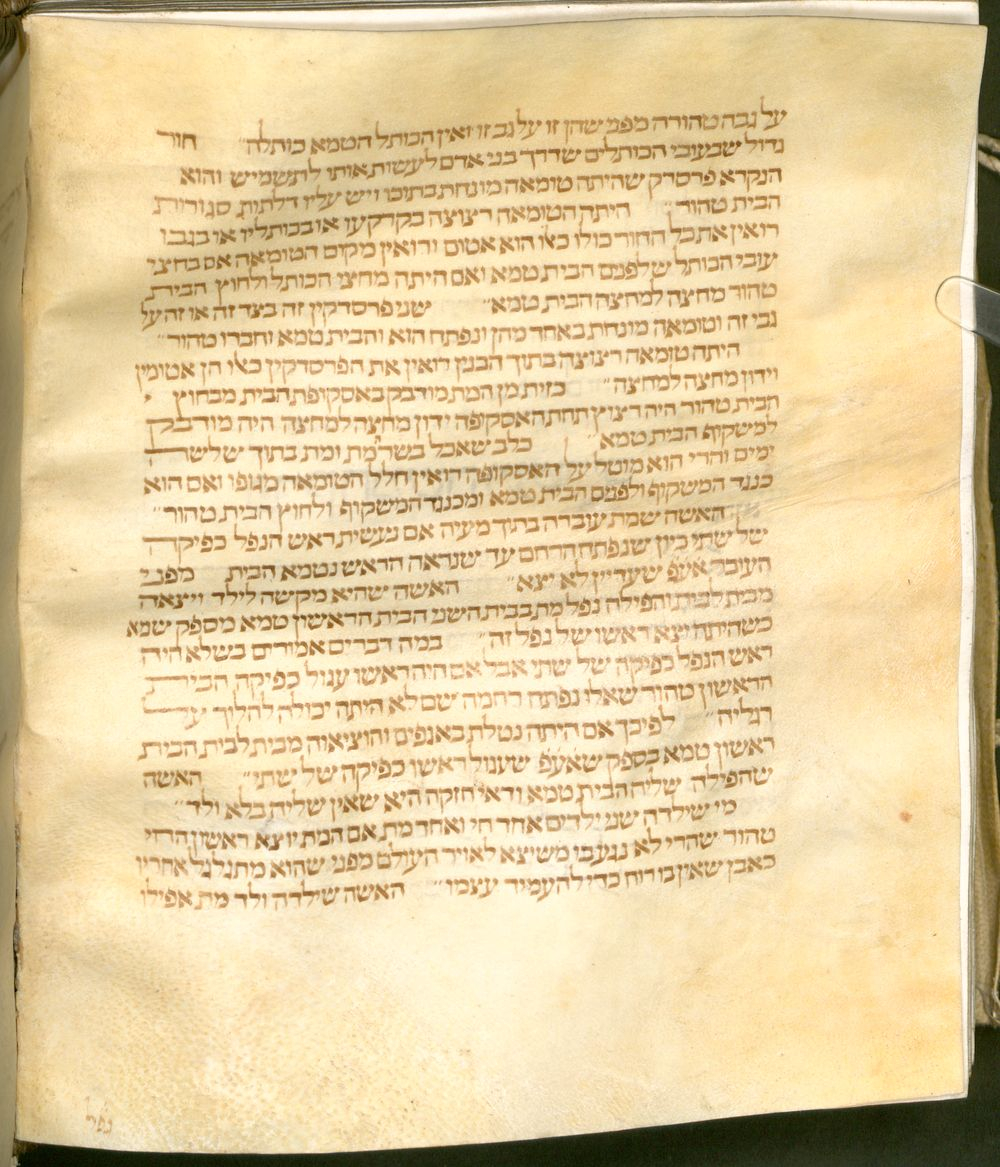 על גבה טהורה מפני שהן זו על גב זו ואין הכותל הטמא כותלה״ חור
גדול שבעובי הכותלים שדרך בני אדם לעשות אותו לתשמיש והוא
הנקרא פרסדק שהיתה טומאה מונחת בתוכו ויש עליו דלתות סגורות
הבית טהור״ היתה הטומאה רצוצה בקרקעו או בכותליו או בגבו
רואין את כל החור כולו כאלו הוא אטום ורואין מקום הטומאה אם בחצי
עובי הכותל שלפנים הבית טמא ואם היתה מחצי הכותל ולחוץ הבית
טהור מחצה למחצה הבית טמא״ שני פרסדקין זה בצד זה או זה על
גבי זה וטומאה מונחת באחד מהן ונפתח הוא והבית טמא וחברו טהור״
היתה טומאה רצוצה בתוך הבנין רואין את הפרסדקין כאלו הן אטומין
וידון מחצה למחצה״ כזית מן המת מודבק באסקופת הבית מבחוץ
הבית טהור היה רצוץ תחת האסקופה ידון מחצה למחצה היה מודבק
למשקוף הבית טמא״ כלב שאכל בשר מת ומת בתוך שלשה
ימים והרי הוא מוטל על האסקופה רואין חלל הטומאה מגופו ואם הוא
כנגד המשקוף ולפנים הבית טמא ומכנגד המשקוף ולחוץ הבית טהור״
האשה שמת עוברה בתוך מעיה אם נעשית ראש הנפל כפיקה
של שתי כיון שנפתח הרחם עד שנראה הראש נטמא הבית מפני
העובר אע״פ שעדיין לא יצא״ האשה שהיא מקשה לילד ויצאה
מבית לבית והפילה נפל מת בבית השני הבית הראשון טמא מספק שמא
כשהיתה יצא ראשו של נפל זה״ במה דברים אמורים בשלא היה
ראש הנפל כפיקה של שתי אבל אם היה ראשו עגול כפיקה הבית
הראשון טהור שאלו נפתח רחמה שם לא היתה יכולה להלוך על
רגליה״ לפיכך אם היתה נטלת באגפים והוציאוה מבית לבית הבית
ראשון טמא בספק שאע״פ שעגול ראשו כפיקה של שתי״ האשה
שהפילה שליה הבית טמא ודאי חזקה היא שאין שליה בלא ולד״
מי שילדה שני ילדים אחד חי ואחד מת אם המת יוצא ראשון החי
טהור שהרי לא נגעבו משיצא לאויר העולם מפני שהוא מתגלגל אחריו
כאבן שאין בו רוח כדי להעמיד עצמו״ האשה שילדה ולד מת אפילו